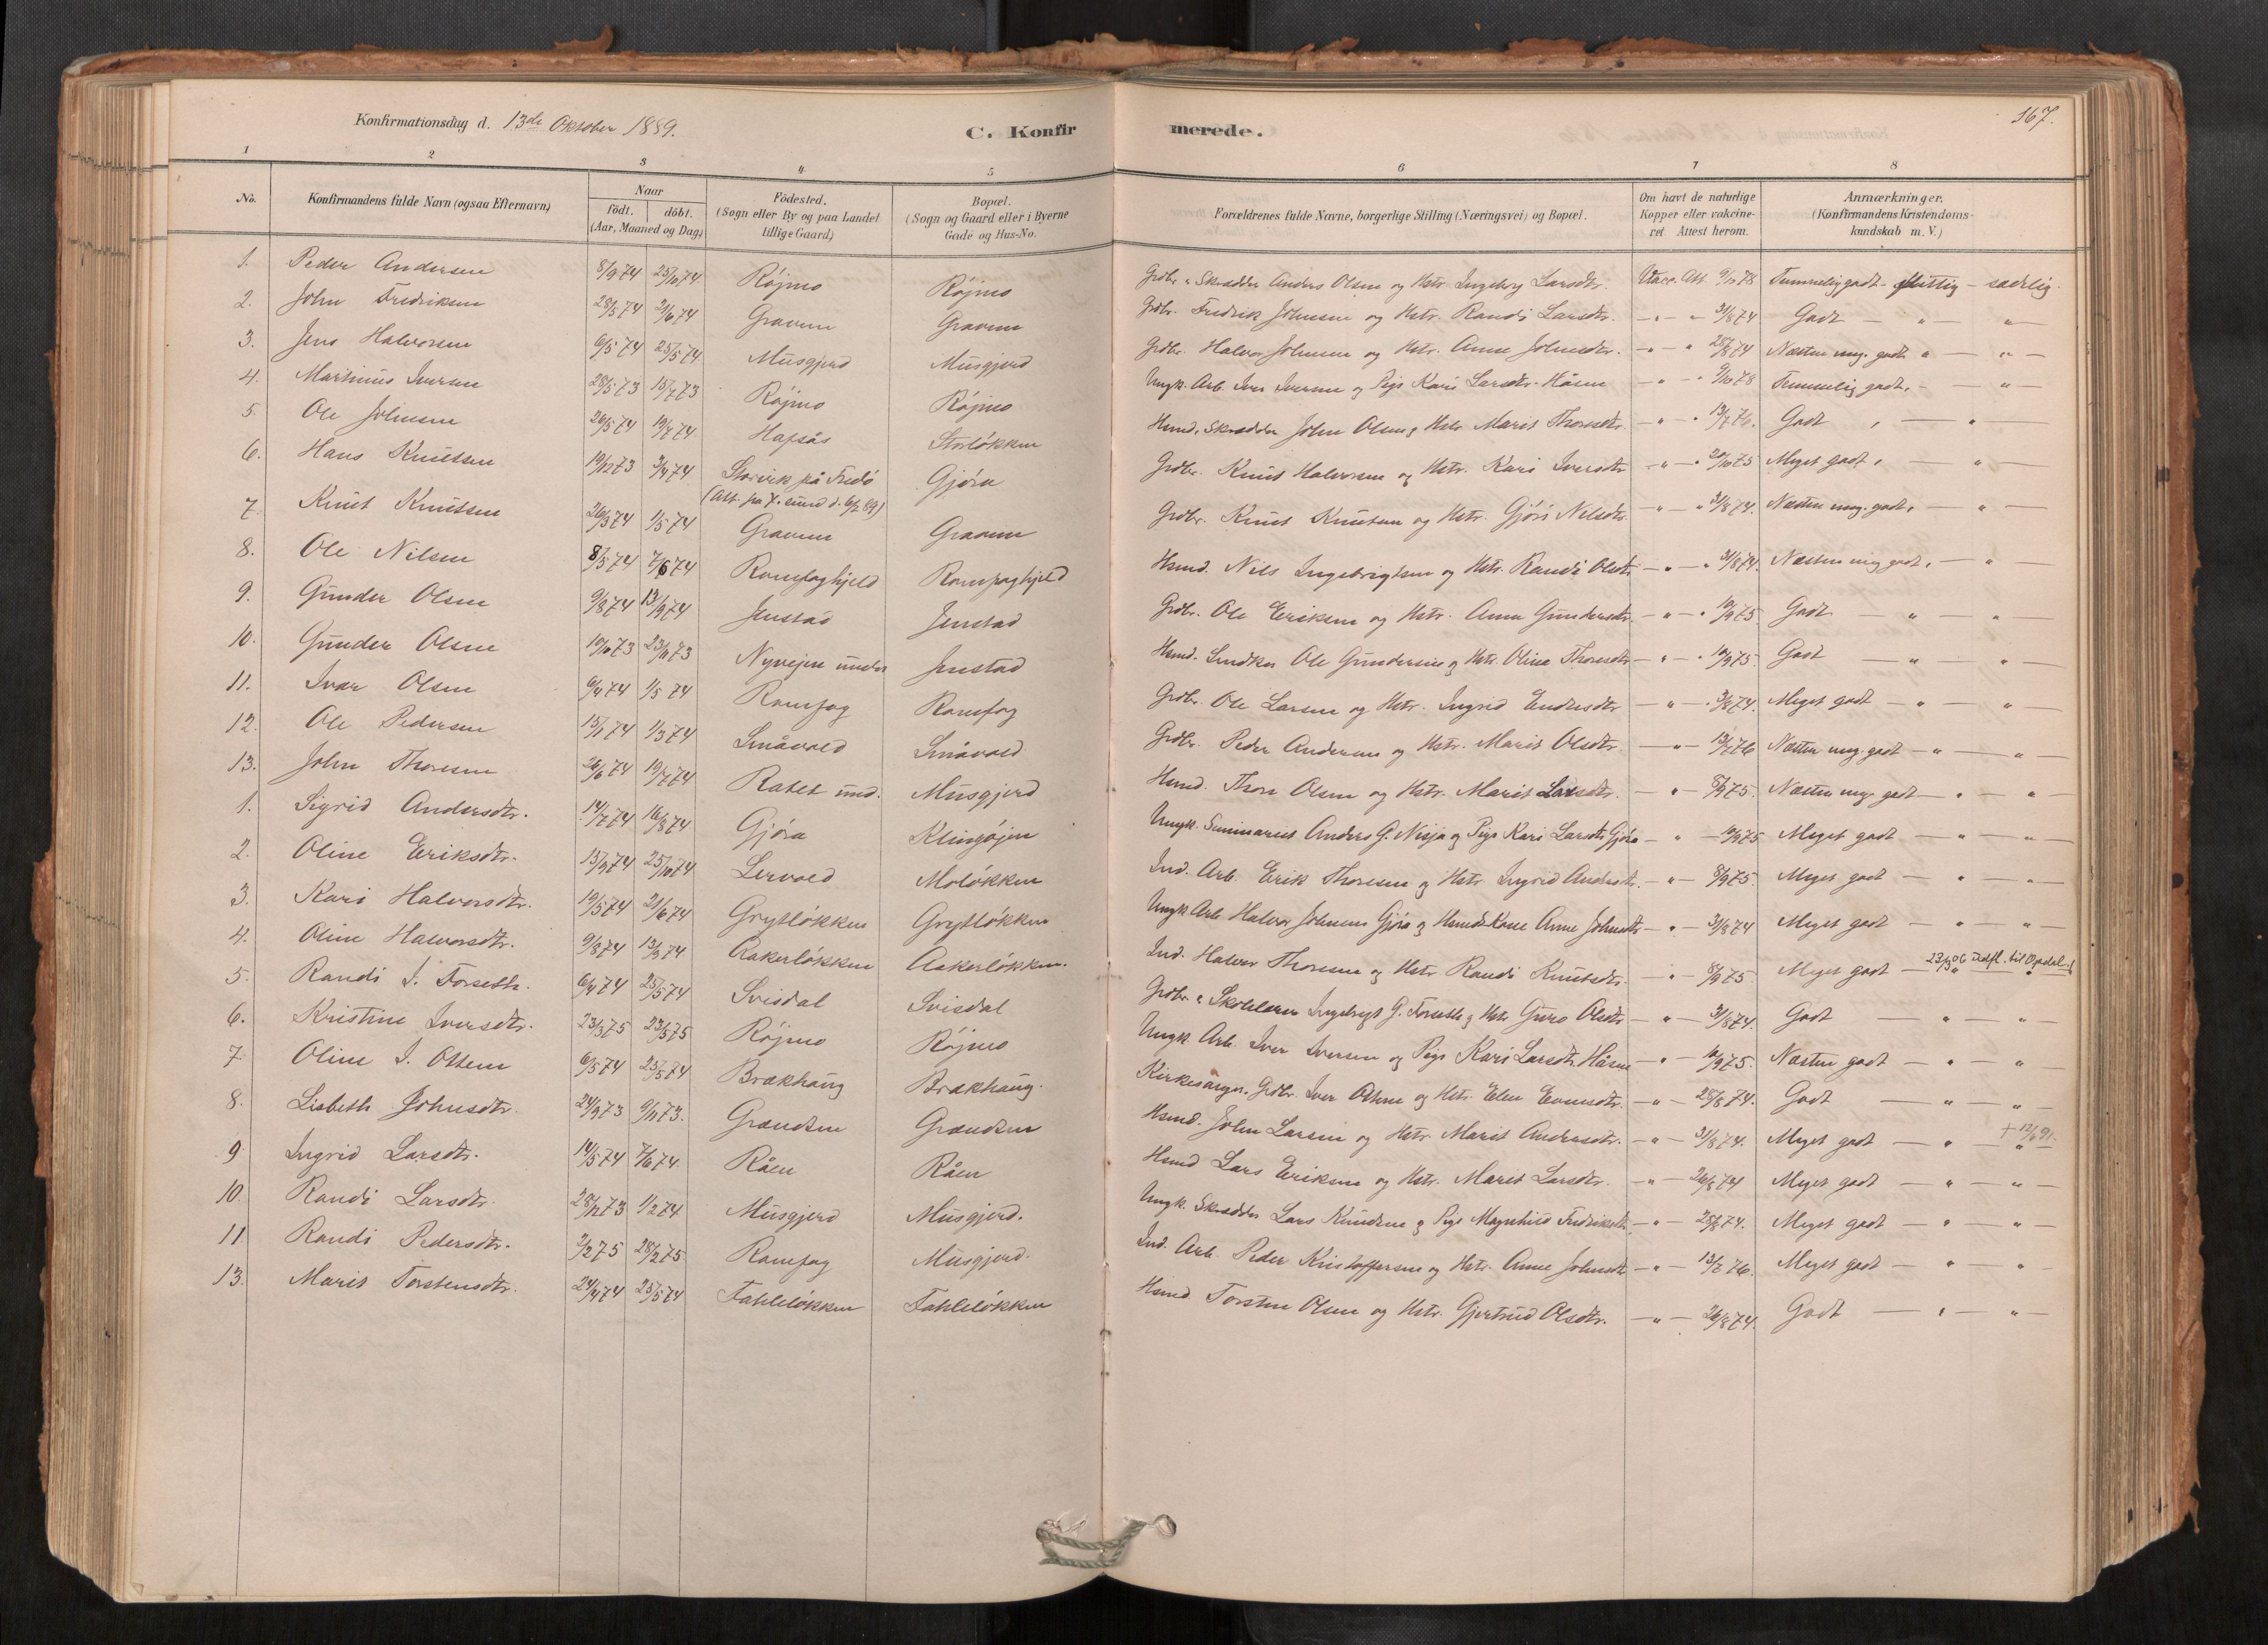 Konfirmationsdag d. 13de Oktober 1889.
C. Konfirmerede.
167.
1 2 3 4 5 6 7 8
No. Konfirmandens fulde Navn (ogsaa Efternavn) Naar födt. döbt. (Aar, Maaned og Dag) Födested. (Sogn eller By og paa Landet tillige Gaard) Bopæl. (Sogn og Gaard eller i Byerne Gade og Hus-No. Forældrenes fulde Navne, borgerlige Stilling (Næringsvei) og Bopæl. Om havt de naturlige Kopper eller vakcineret Attest herom. Anmærkninger. (Konfirmandens Kristendomskundskab m. V.)
1. Peder Andersen 8/9 74 25/10 74 Röjmo Röjmo Grdbr. & Skrædder Anders Olsen og Hstr. Ingebrg Larsdtr. Vacc. Att 9/10 78 Temmelig godt - flittig - sædelig.
2. John Fredriksen 28/5 74 21/6 74 Gravem Gravem Grdbr. Fredrik Johnsen og Hstr. Randi Larsdtr. — " — " 31/8 74 Godt — " — " —
3. Jens Halvorsen 6/5 74 25/5 74 Musgjerd Musgjerd Grdbr. Halvor Johnsen og Hstr. Anne Johnsdtr. — " — " 28/8 74 Næsten meg. godt " — " —
4. Martinus Iversen 28/5 73 15/7 73 Röjmo Röjmo Ungk. Arb. Iver Iversen og Pige Kari Larsdtr. Håsen — " — " 9/10 78 Temmelig godt " — " —
5. Ole Johnsen 26/5 74 19/7 74 Hafsås Storlökken Hsmd. Skrædder John Olsen og Hstr. Marit Thoresdtr. — " — " 13/7 76. Godt " — " —
6. Hans Knutsen 19/12 73 3/4 74 Storvik på Fredö Gjöra Grdbr. Knut Halvorsen og Hstr. Kari Iversdtr — " — " 20/10 75 Meget godt " — " —
(Att. fra K.sund d. 6/2 89)
7. Knut Knutsen 26/3 74 1/5 74 Gravem Gravem Grdbr. Knut Knutsen og Hstr. Gjöri Nilsdtr. — " — " 31/8 74. Næsten meg. godt " — " —
8. Ole Nilsen 8/5 74 7/6 74 Romfoghjeld Romfoghjeld Hsmd. Nils Ingebrigtsen og Hstr. Randi Olsdtr — " — " 31/8 74. Næsten meg godt " — " —
9. Gunder Olsen 9/8 74 13/9 74 Jenstad Jenstad Grdbr. Ole Eriksen og Hstr. Anne Gundersdtr — " — " 10/9 75 Godt — " — " —
10. Gunder Olsen 19/10 73 23/11 73 Nyvejen under Jenstad Hsmd. Snedker Ole Gundersen og Hstr. Oline Thoresdtr — " — " 10/9 75. Godt — " — " —
11. Ivar Olsen 6/4 74 1/5 74 Romfog Romfog Grdbr. Ole Larsen og Hstr. Ingrid Endresdtr — " — " 31/8 74. Meget godt — " — " —
12. Ole Pedersen 15/1 74 1/3 74 Småvold Småvold Grdbr. Peder Andersen og Hstr. Marit Olsdtr. — " — 13/7 76 Næsten meg. godt — " — " —
13. John Thoresen 26/6 74 19/7 74 Ratet und. Musgjerd Hsmd. Thore Olsen og Hstr. Marit Larsdtr. — " — 8/9 75. Næsten meg. godt — " — " —
1. Sigrid Andersdtr. 14/7 74 16/8 74 Gjöra Klingöjen Ungk. Seminarist Anders G. Nisja og Pige Kari Larsdtr Gjöra " — 10/9 75 Meget godt — " — " —
2. Oline Eriksdtr. 15/9 74 25/10 74 Lervold Molökken Ind. Arb. Erik Thoresen og Hstr Ingrid Andersdtr. — " — 8/9 75. Meget godt — " — " —
3. Kari Halvorsdtr. 19/5 74 21/6 74 Grytlökken Grytlökken Ungk. Arb. Halvor Johnsen Gjöra og Hsmds Kone Anne Johnsdtr — " — 31/8 74 Meget godt — " — " —
4. Oline Halvorsdtr. 9/8 74 13/9 74 Aakerlökken Aakerlökken. Ind. Halvor Thoresen og Hstr Randi Knutsdtr. — " — 8/9 75 Meget godt — 23/3 06 Udfl. til Opdal
5. Randi I. Forseth. 6/4 74 25/5 74 Svisdal Svisdal Grdbr. & Skolelærer Ingebrigt G. Forseth og Hstr. Guro Olsdtr — " — 31/8 74. Godt — " — " —
6. Kristine Iversdtr. 23/3 75 23/5 75 Röjmo Röjmo Ungk. Arb. Iver Iversen og Pige Kari Larsdtr. Håsen — " — 10/9 75. Næsten godt — " — "
7. Oline I. Ottem 6/5 74 25/5 74 Brækhaug Brækhaug. Kirkesanger. Grdbr. Iver Ottem og Hstr. Elen Evensdtr. — " — 28/8 74. Godt — " — " —
8. Lisbeth Johnsdtr. 24/9 73 9/11 73. Grændsen Grændsen Hsmd. John Larsen og Hstr. Marit Andersdtr. — " — 31/8 74. Meget godt — " — + 12/6 91.
9. Ingrid Larsdtr. 14/5 74 7/6 74. Råen Råen Hsmd Lars Eriksen og Hstr. Marit Larsdtr. — " — 26/8 74 Meget godt — " — " —
10. Randi Larsdtr. 28/12 73 1/2 74 Musgjerd Musgjerd. Ungk. Skrædder Lars Knudsen og Pige Magnhild Fredriksdtr. — " — 25/8 74. Meget godt — " — " —
11. Randi Pedersdtr. 2/2 75 28/2 75 Romfog Musgjerd. Ind. Arb. Peder Kristoffersen og Hstr. Anne Johnsdtr — " — 13/7 76. Meget godt — " — " —
13. Marit Torstensdtr. 24/4 74 25/5 74 Fahlelökken Fahlelökken Hsmd Torsten Olsen og Hstr. Gjertrud Olsdtr. — " — 26/8 74. Godt — " — " —